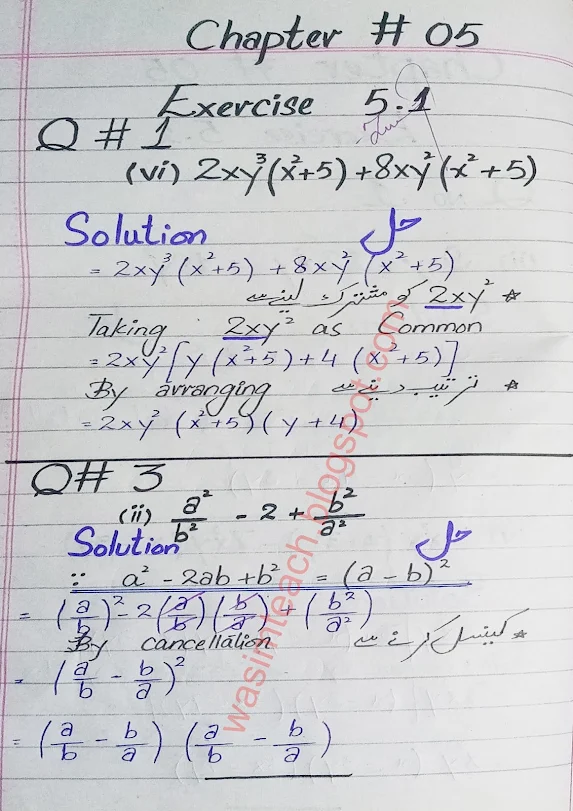 Chapter # 05
Exercise 5.1
Q # 1
(vi) 2xy³(x²+5) + 8xy²(x²+5)
Solution حل
= 2xy³(x²+5) + 8xy²(x²+5)
* 2xy² کو مشترک لینے سے
Taking 2xy² as Common
= 2xy²[y(x²+5)+4(x²+5)]
By arranging * ترتیب دینے سے
= 2xy²(x²+5)(y+4)
Q# 3
(ii) a²/b² - 2 + b²/a²
Solution حل
∵ a² - 2ab + b² = (a - b)²
= (a/b)² - 2(a/b)(b/a) + (b²/a²)
By cancellation * کینسل کرنے سے
= (a/b - b/a)²
= (a/b - b/a) (a/b - b/a)
wasimteach.blogspot.com